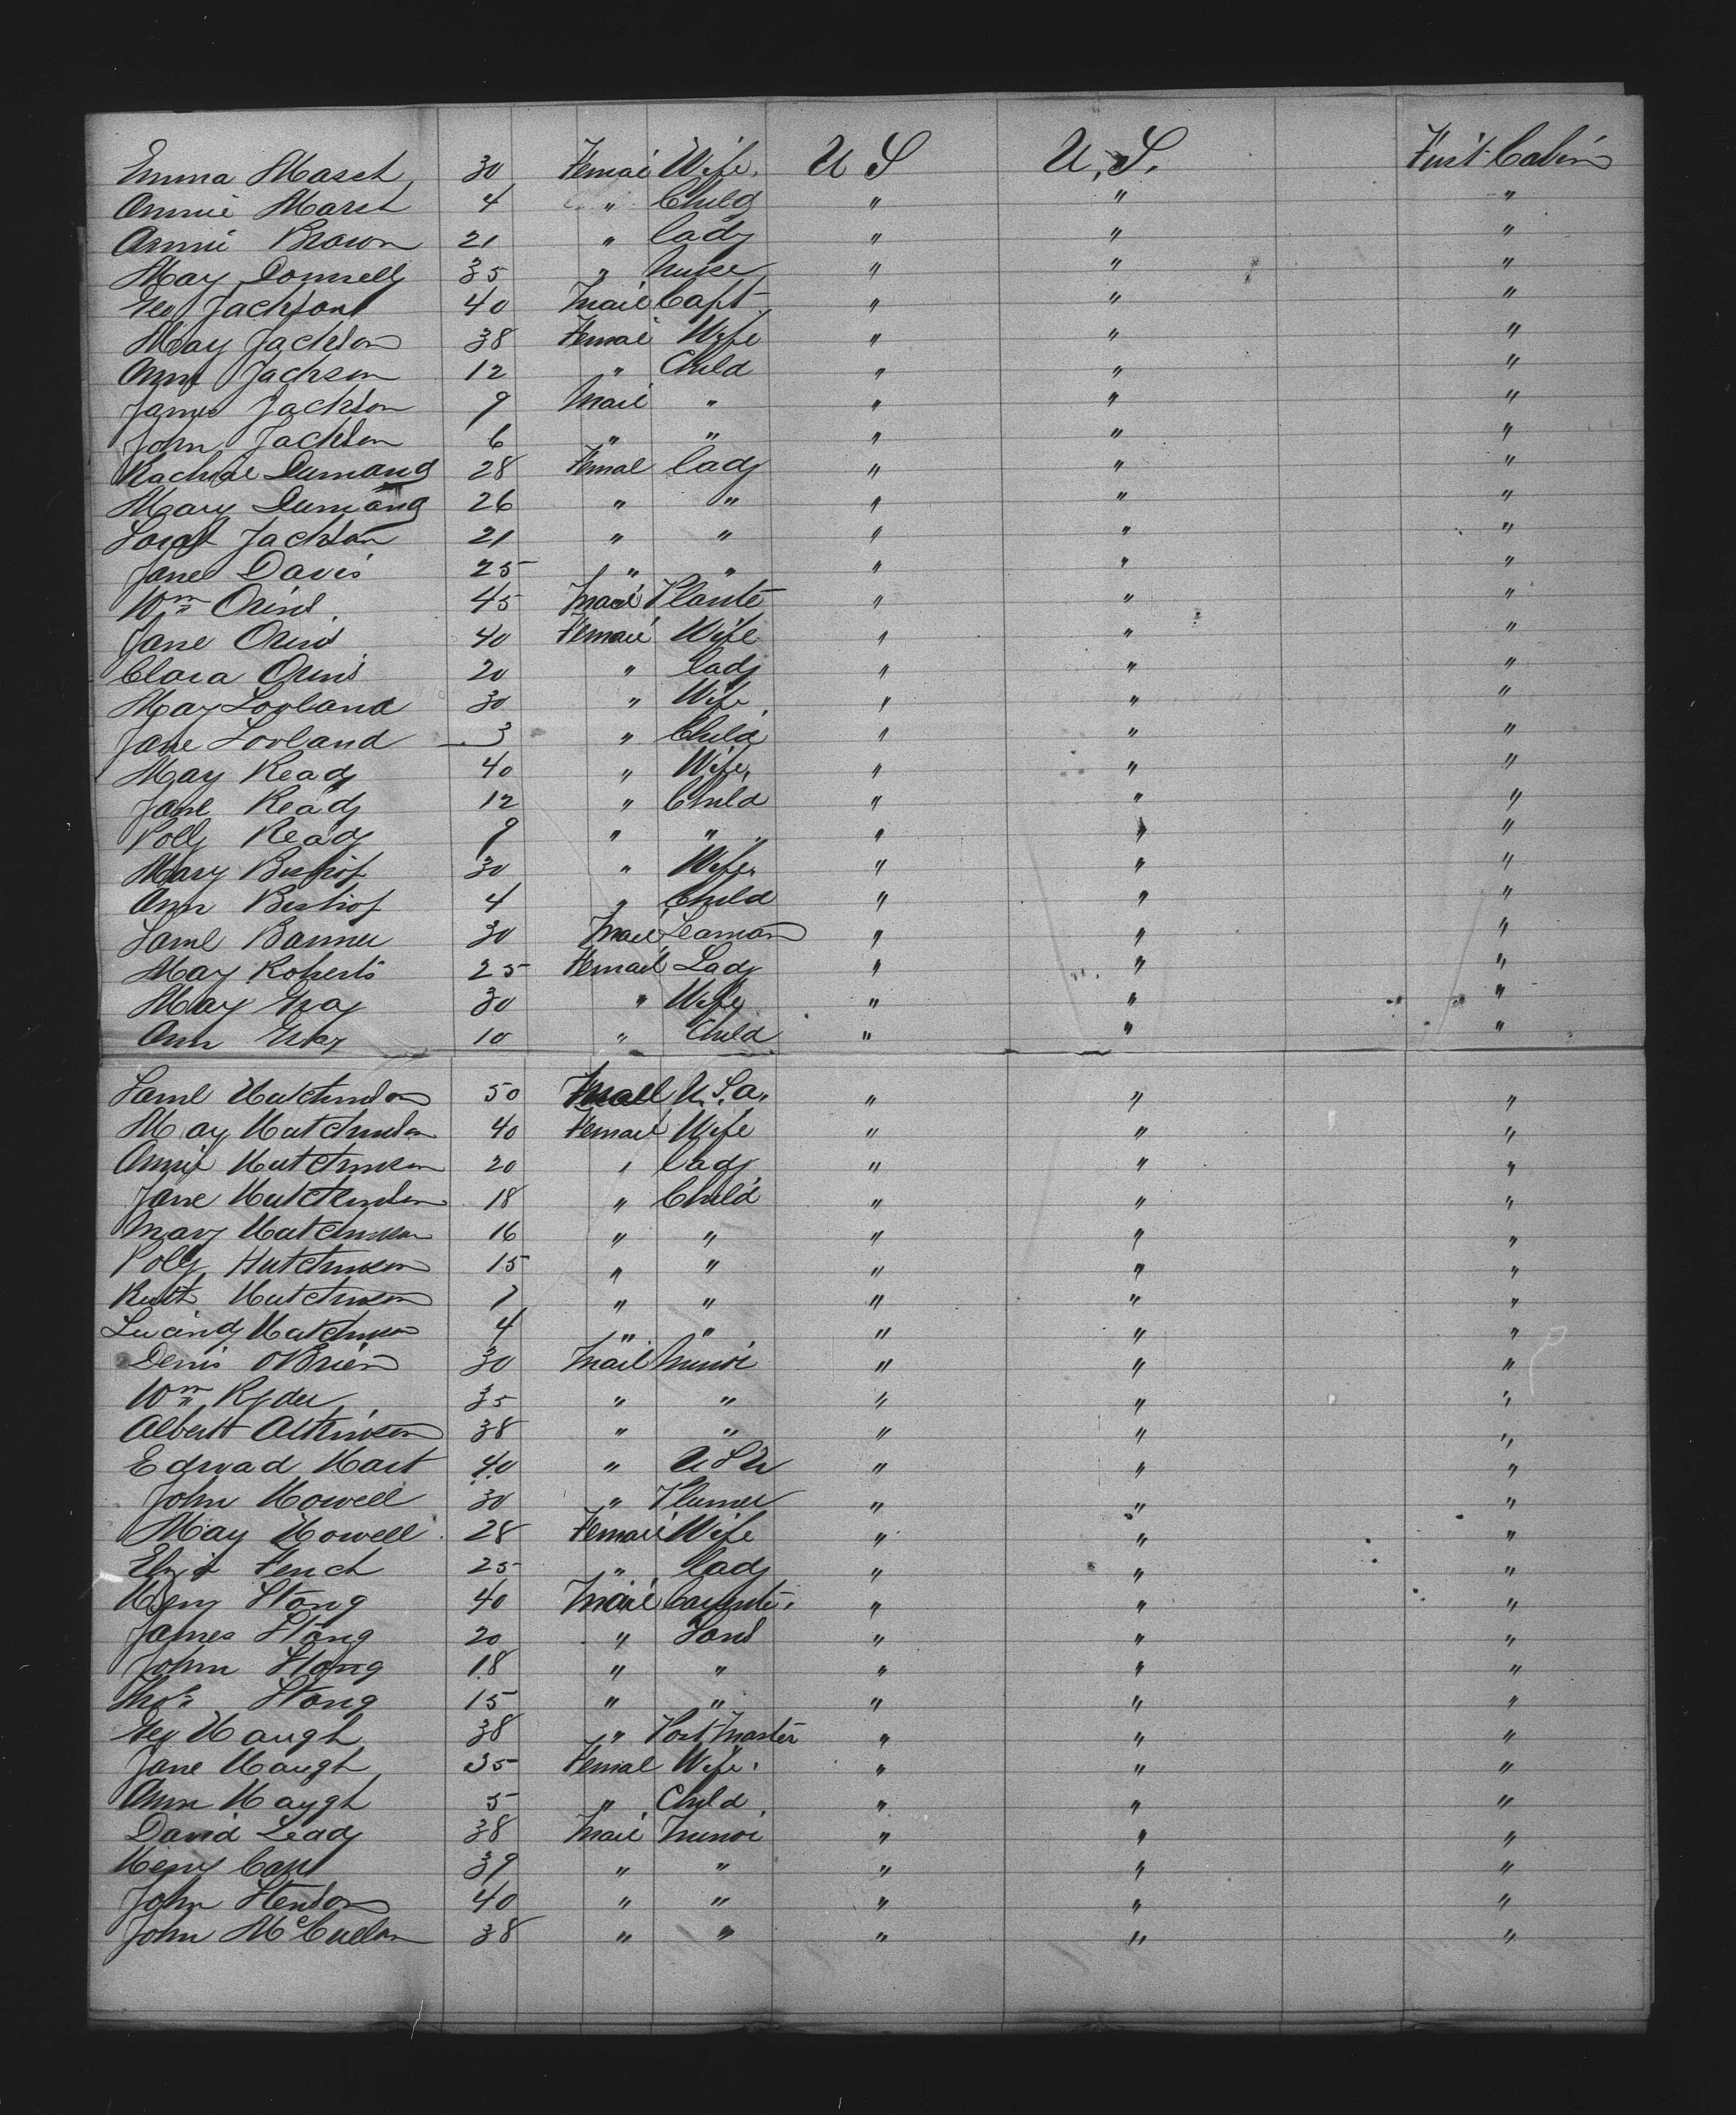 Emma March 30 Femal Wife. U S U. S. First Cabin
Annie March 4 " Child " " "
Annie Brown 21 " lady " " "
May Donnelly 35 " Nurse " " "
Geo Jackson 40 Mail Capt " " "
May Jackson 38 Femal Wife " " "
Ann Jackson 12 " Child " " "
James Jackson 9 Mail " " " "
John Jackson 6 " " " " "
Rachiel Dumang 28 Femal lady " " "
Mary Dumang 26 " " " " "
Sarah Jackson 21 " " " " "
Jane Davis 25 " " " " "
Wm 45 Mail Plante " " "
Jane 40 Femail Wife " " "
Clara 20 " lady " " "
May Lovland 30 " Wife " " "
Jane Lovland 3 " Child " " "
May Ready 40 " Wife, " " "
Jane Ready 12 " Child " " "
Polly Ready 9 " " " " "
Mary Bishop 30 " Wife. " " "
Ann Bishop 4 " Child " " "
Saml Banner 30 Mail Seaman " " "
May Roberts 25 Femail Lady " " "
May Gray 30 " Wife " " "
Ann Gray 10 " Child " " "
Saml Hutchinson 50 Mall U.S.a. " " "
May Hutchinson 40 Femail Wife " " "
Annie Hutchinson 20 " lady " " "
Jane Hutchinson 18 " Child " " "
Mary Hutchinson 16 " " " " "
Polly Hutchinson 15 " " " " "
Ruth Hutchinson 7 " " " " "
Lucindy Hutchinson 4 " " " " "
Denis OBrien 30 Mail Minor " " "
Wm Ryder 35 " " " " "
Albert Atkinson 38 " " " " "
Edwad Hart 40 " U S N " " "
John Howell 30 " Plumer " " "
May Howell 28 Femail Wife " " "
Eliza French 25 " lady " " "
Heny Stong 40 Mail Carpente. " " "
James Stong 20 " Sons " " "
John Stong 18 " " " " "
Thos Stong 15 " " " " "
Geo Haugh 38 " Post Master " " "
Jane Haugh 35 Femal Wife. " " "
Ann Haugh 5 " Child " " "
David Leady 38 Mail Minor " " "
Heny Carr 39 " " " " "
John Stenson 40 " " " " "
John McCullon 38 " " " " "